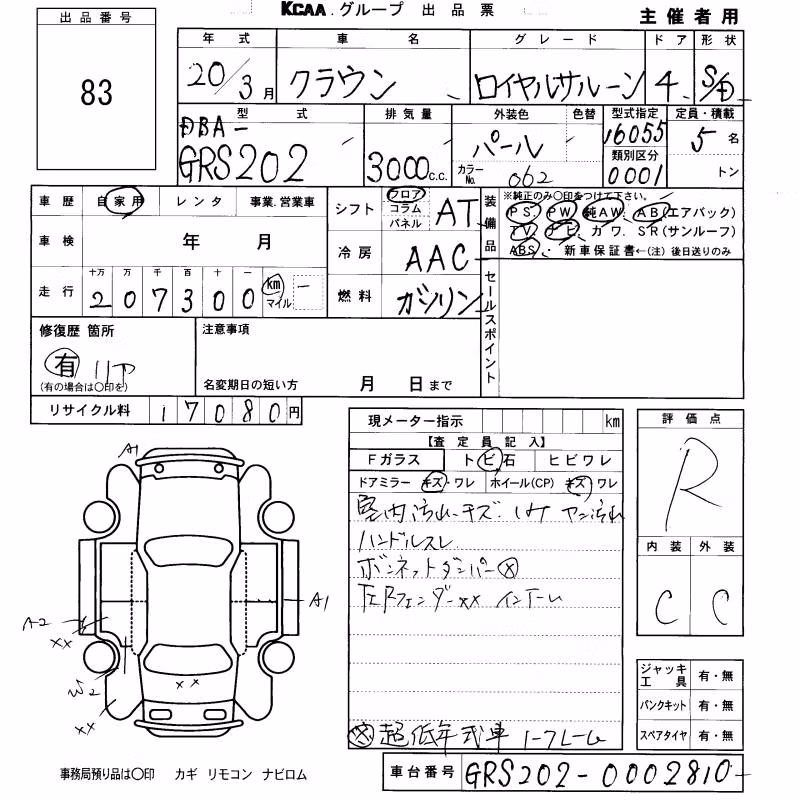 KCAA.グループ 出品票
主催者用
出品番号
83
年式 車名 グレード ドア 形状
20/3月 クラウン ロイヤルサルーン 4 S/D
型式 排気量 外装色 色替 型式指定 定員・積載
DBA-
GRS202 3000c.c. パール 16055 5名
カラーNo. 062 類別区分 0001 トン
車歴 自家用 レンタ 事業.営業車
シフト フロア コラム パネル AT
装備品 ※純正のみ○印をつけて下さい。
PS. PW 純AW. AB(エアバック)
TV ナビ. カワ. SR(サンルーフ)
ABS. 新車保証書←(注)後日送りのみ
車検 年 月
冷房 AAC
走行 十万 万 千 百 十 一
207300 km マイル
燃料 ガソリン
セールスポイント
修復歴 箇所
有 リア
(有の場合は○印を)
注意事項
名変期日の短い方 月 日まで
リサイクル料 17080円
現メーター指示 km
【査定員記入】
Fガラス トビ石 ヒビワレ
ドアミラー キズ・ワレ ホイール(CP) キズ ワレ
室内汚れ・キズ.
ハンドルスレ
ボンネットダンパー
左Rフェンダーxx インナー
超低年式車
評価点
R
内装 外装
C C
ジャッキ工具 有・無
パンクキット 有・無
スペアタイヤ 有・無
A1
A1
A2
xx
W2
xx
xx
事務局預り品は○印 カギ リモコン ナビロム
車台番号 GRS202-0002810